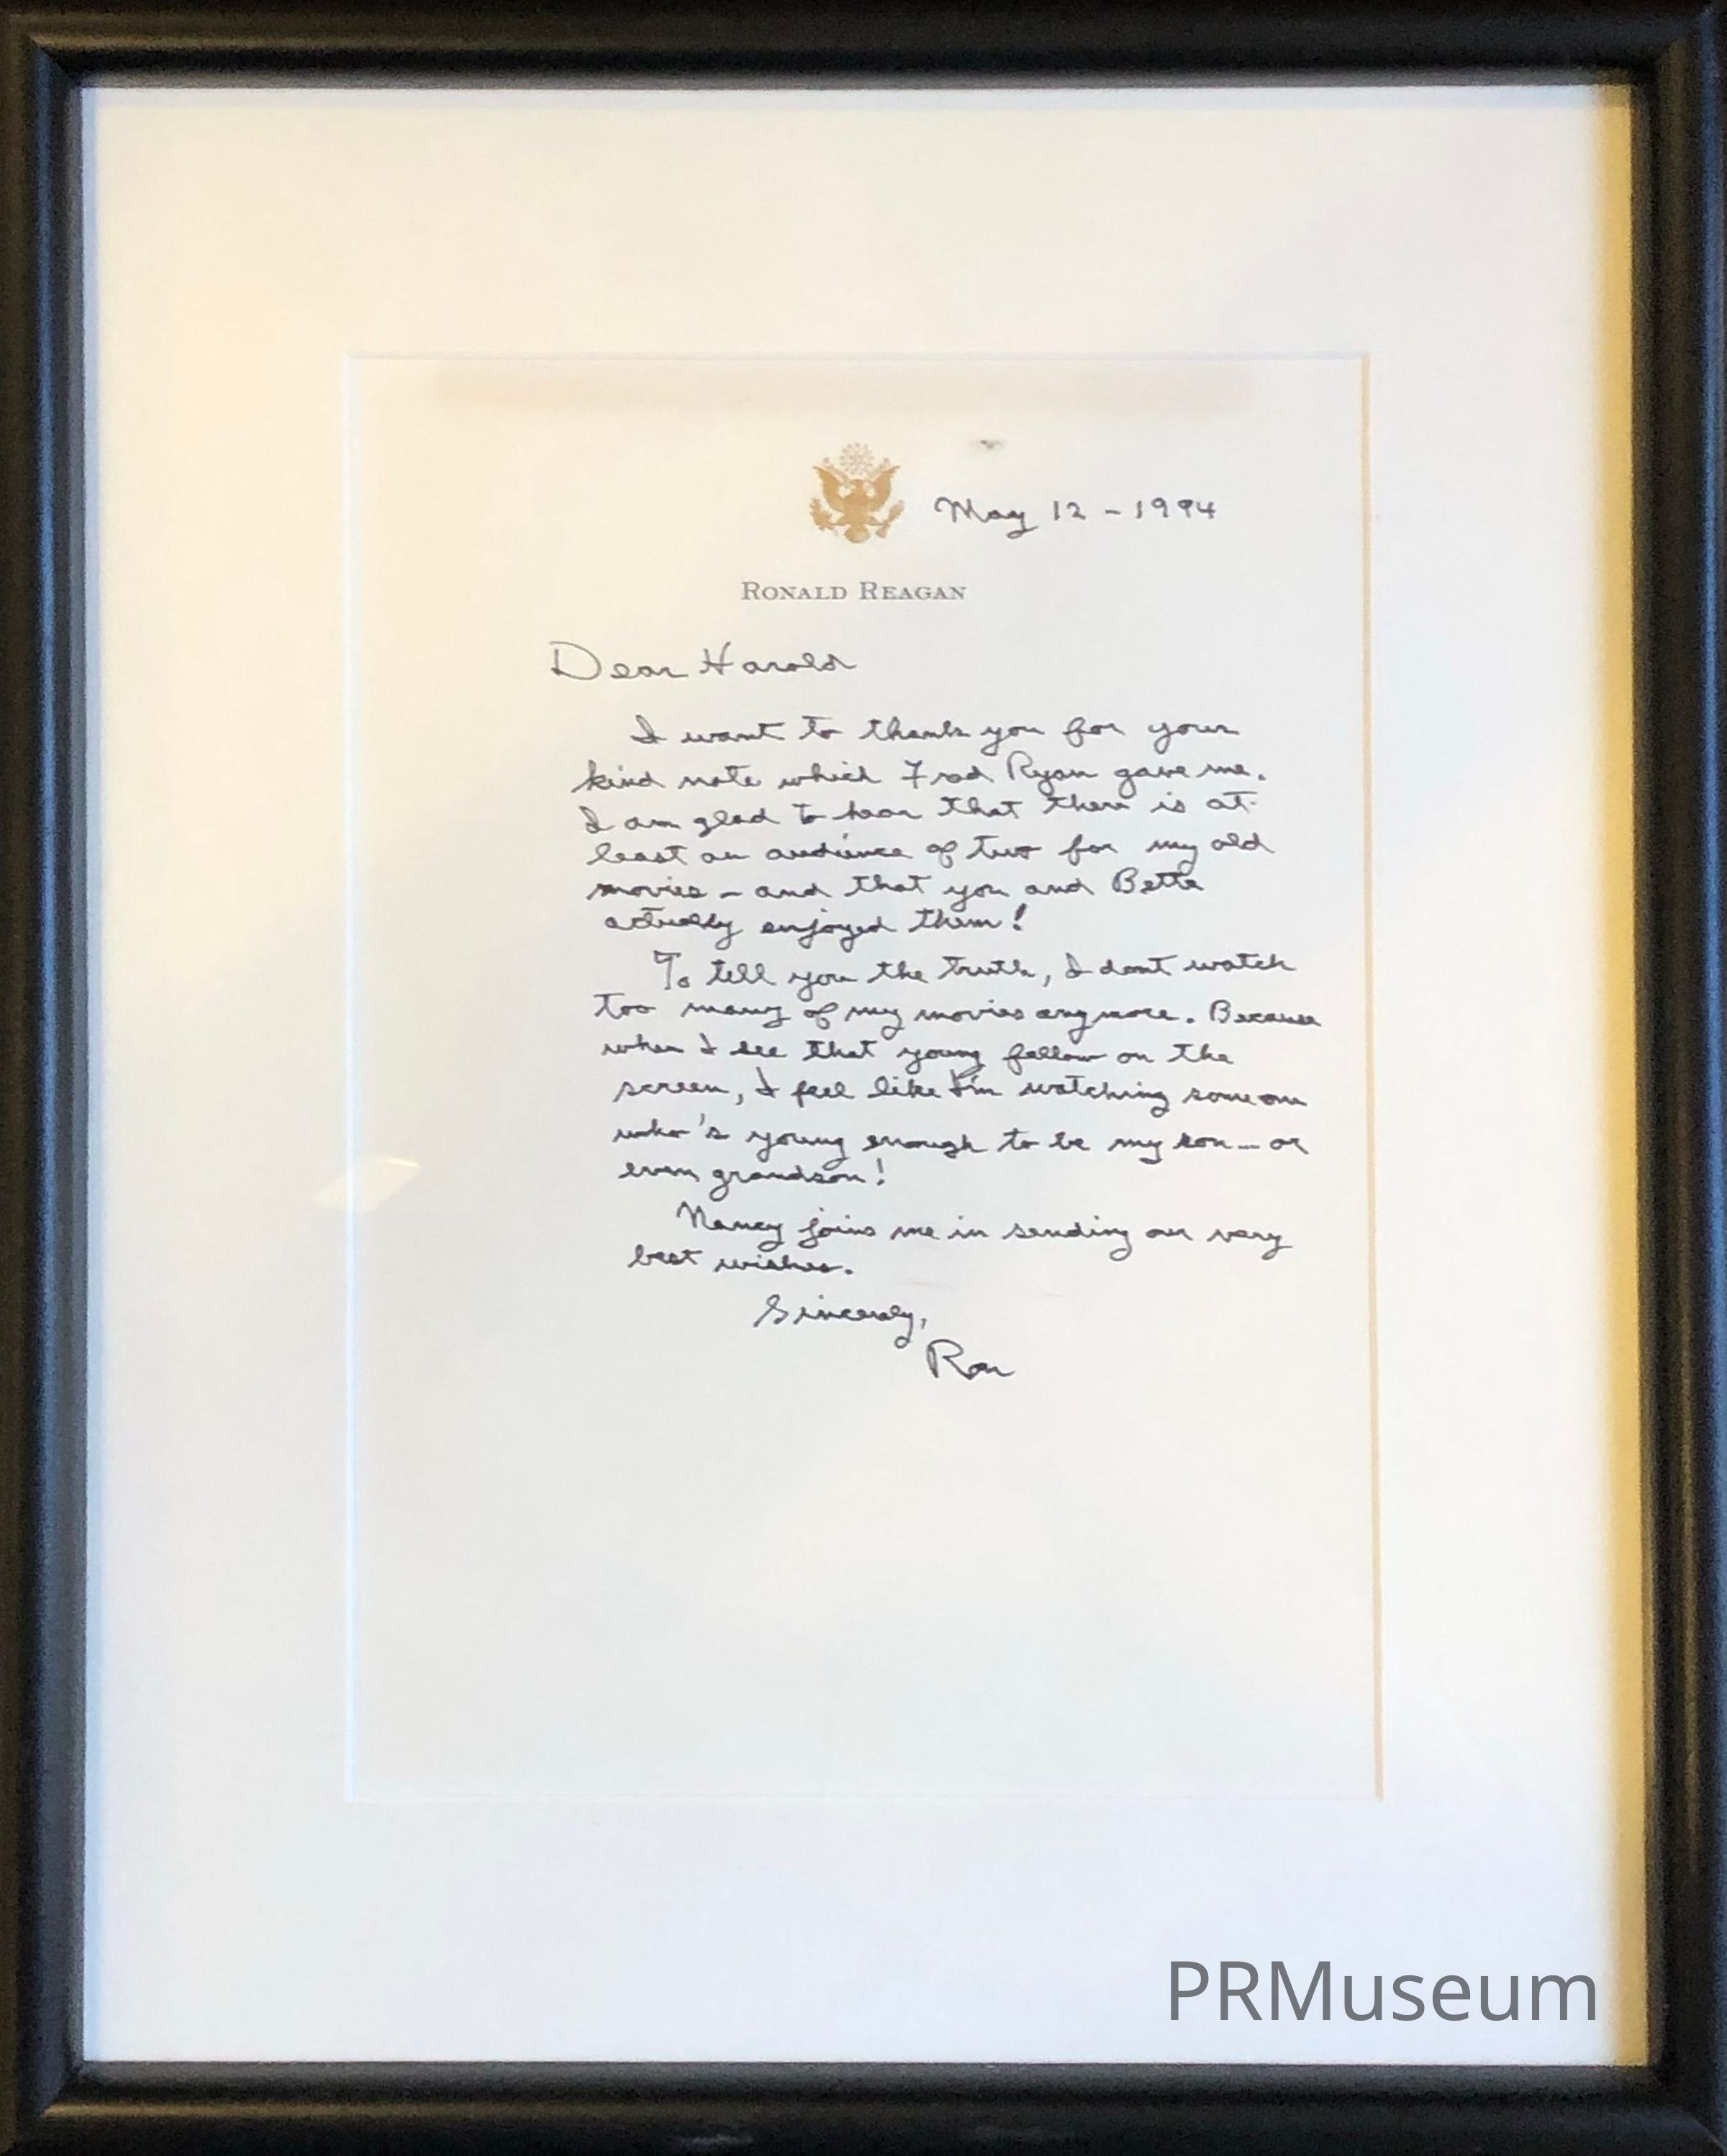 May 12 - 1994
RONALD REAGAN
Dear Harold
I want to thank you for your
kind note which Fred Ryan gave me.
I am glad to hear that there is at
least an audience of two for my old
movies - and that you and Bette
actually enjoyed them!
To tell you the truth, I dont watch
too many of my movies anymore. Because
when I see that young fellow on the
screen, I feel like I'm watching someone
who's young enough to be my son - or
even grandson!
Nancy joins me in sending our very
best wishes.
Sincerely,
Ron
PRMuseum